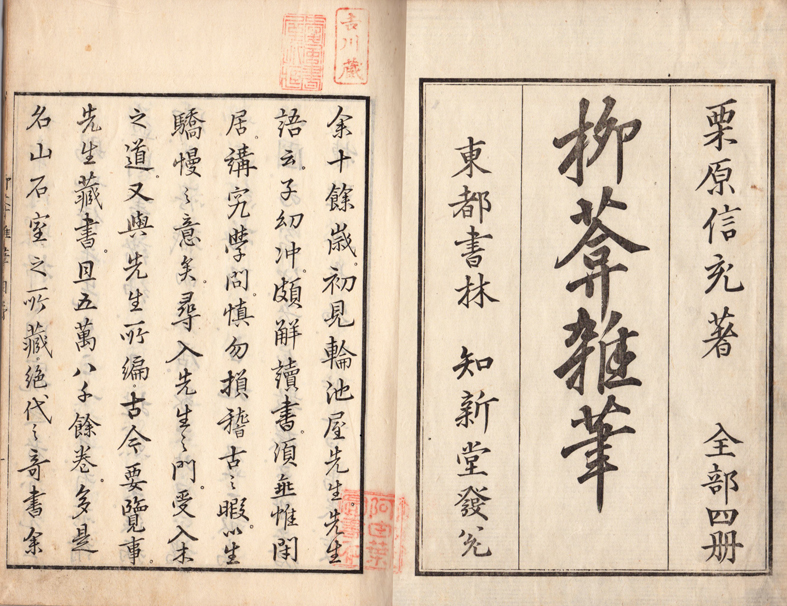 栗原信充著　全部四册
柳葊雜筆
東都書林　知新堂發兌
余十餘歲。初見輪池屋先生。先生
語云。子幼冲。頗解讀書。須無惟閑
居。講究學問。慎勿損稽古之暇。以生
驕慢之意矣。尋入先生之門。受入木
之道。又與先生所編古今要覽事。
先生藏書。且五萬八千餘卷。多是
名山石室之所藏。絕代之奇書。余
吉川藏